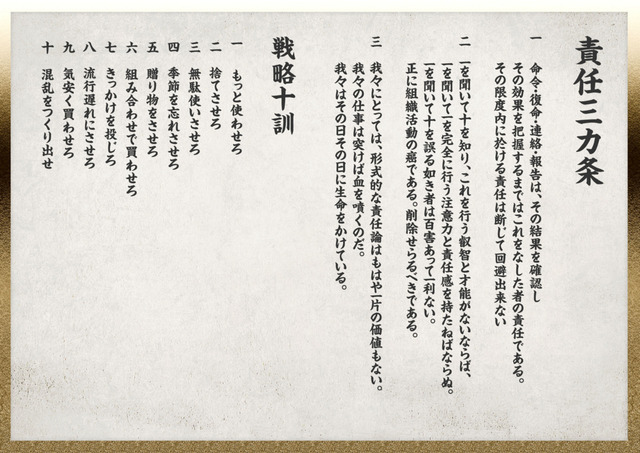 責任三カ条
一 命令・復命・連絡・報告は、その結果を確認し
その効果を把握するまではこれをなした者の責任である。
その限度内に於ける責任は断じて回避出来ない
二 一を聞いて十を知り、これを行う叡智と才能がないならば、
一を聞いて一を完全に行う注意力と責任感を持たねばならぬ。
一を聞いて十を誤る如き者は百害あって一利ない。
正に組織活動の癌である。削除せらるべきである。
三 我々にとっては、形式的な責任論はもはや一片の価値もない。
我々の仕事は突けば血を噴くのだ。
我々はその日その日に生命をかけている。
戦略十訓
一 もっと使わせろ
二 捨てさせろ
三 無駄使いさせろ
四 季節を忘れさせろ
五 贈り物をさせろ
六 組み合わせで買わせろ
七 きっかけを投じろ
八 流行遅れにさせろ
九 気安く買わせろ
十 混乱をつくり出せ